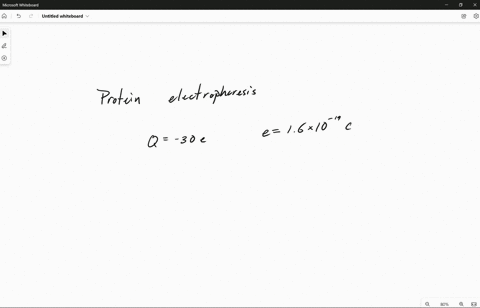 Microsoft Whiteboard
Untitled whiteboard
Protein electrophoresis
Q = -30 e
e = 1.6 × 10⁻¹⁹ C
80%